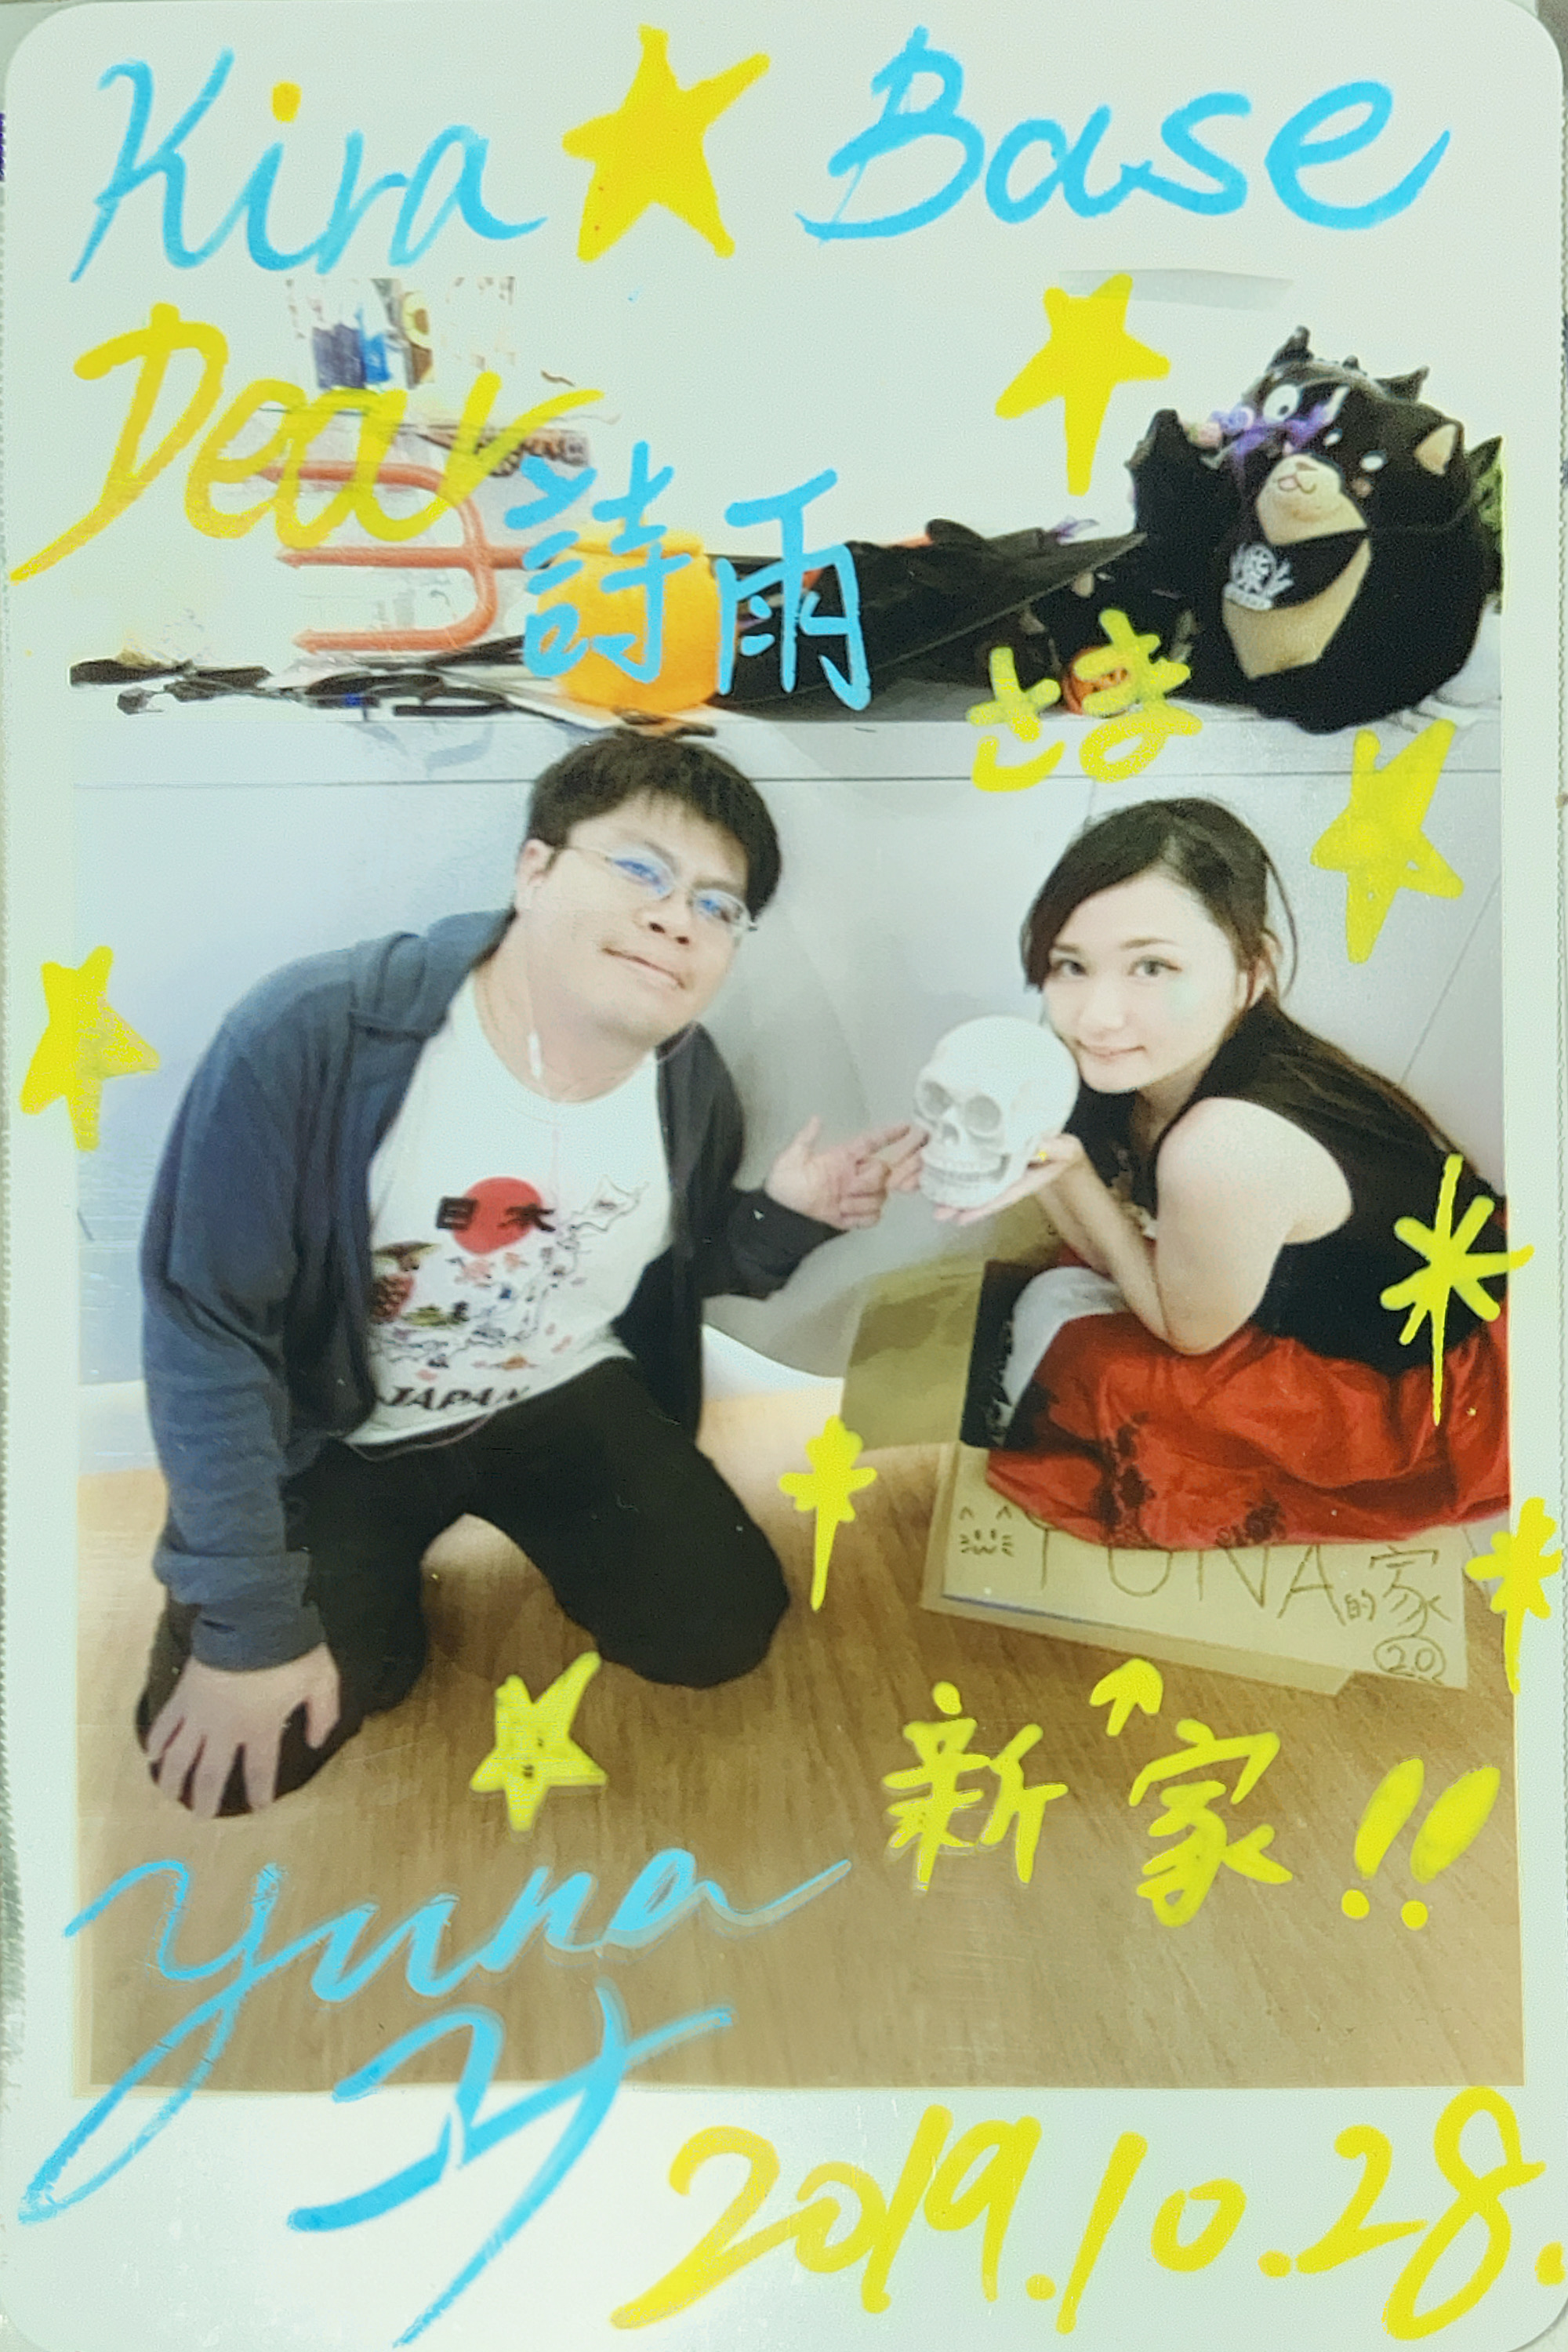 Kira ★ Base
Dear
詩雨
さま
日本
JAPAN
YUNA的家
20
↑
新家!!
Yuna
2019.10.28.